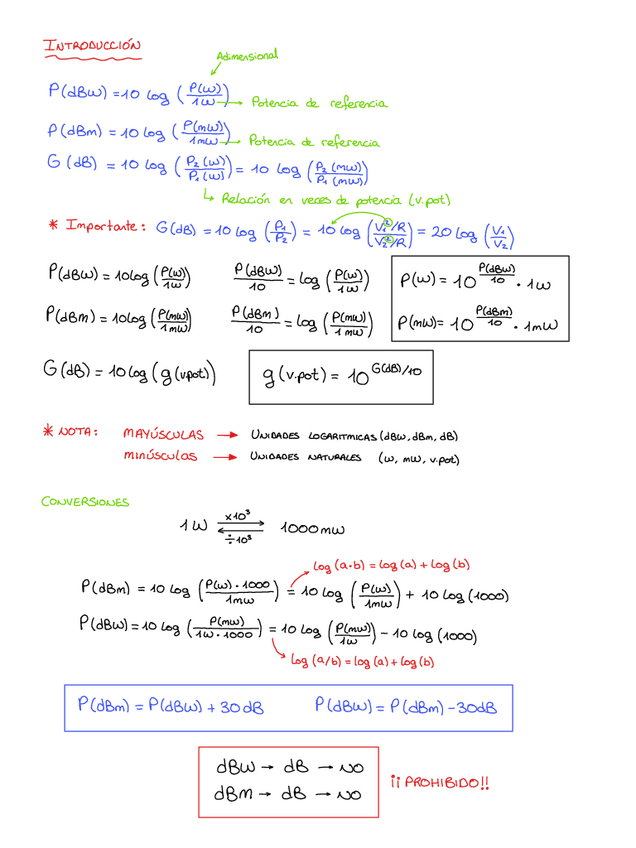 INTRODUCCIÓN
Adimensional
P(dBw) = 10 log (P(w)/1w) → Potencia de referencia
P(dBm) = 10 log (P(mw)/1mw) → Potencia de referencia
G (dB) = 10 log (P₂(w)/P₁(w)) = 10 log (P₂(mw)/P₁(mw))
↳ Relación en veces de potencia (v.pot)
* Importante: G(dB) = 10 log (P₁/P₂) = 10 log (V₁²/R/V₂²/R) = 20 log (V₁/V₂)
P(dBw) = 10log (P(w)/1w) P(dBw)/10 = log (P(w)/1w) P(w) = 10^(P(dBw)/10) · 1w
P(dBm) = 10log (P(mw)/1mw) P(dBm)/10 = log (P(mw)/1mw) P(mw) = 10^(P(dBm)/10) · 1mw
G(dB) = 10 log (g(v.pot)) g(v.pot) = 10^(G(dB)/10)
* NOTA: MAYÚSCULAS → UNIDADES LOGARITMICAS (dBw, dBm, dB)
MINÚSCULAS → UNIDADES NATURALES (w, mw, v.pot)
CONVERSIONES
×10³
1 W ⇄ 1000 mw
÷10³
log (a·b) = log(a) + log(b)
P(dBm) = 10 log (P(w)·1000/1mw) = 10 log (P(w)/1mw) + 10 log (1000)
P(dBw) = 10 log (P(mw)/1w·1000) = 10 log (P(mw)/1w) - 10 log (1000)
log (a/b) = log(a) + log(b)
P(dBm) = P(dBw) + 30 dB P(dBw) = P(dBm) - 30dB
dBw → dB → NO
dBm → dB → NO
¡¡PROHIBIDO!!